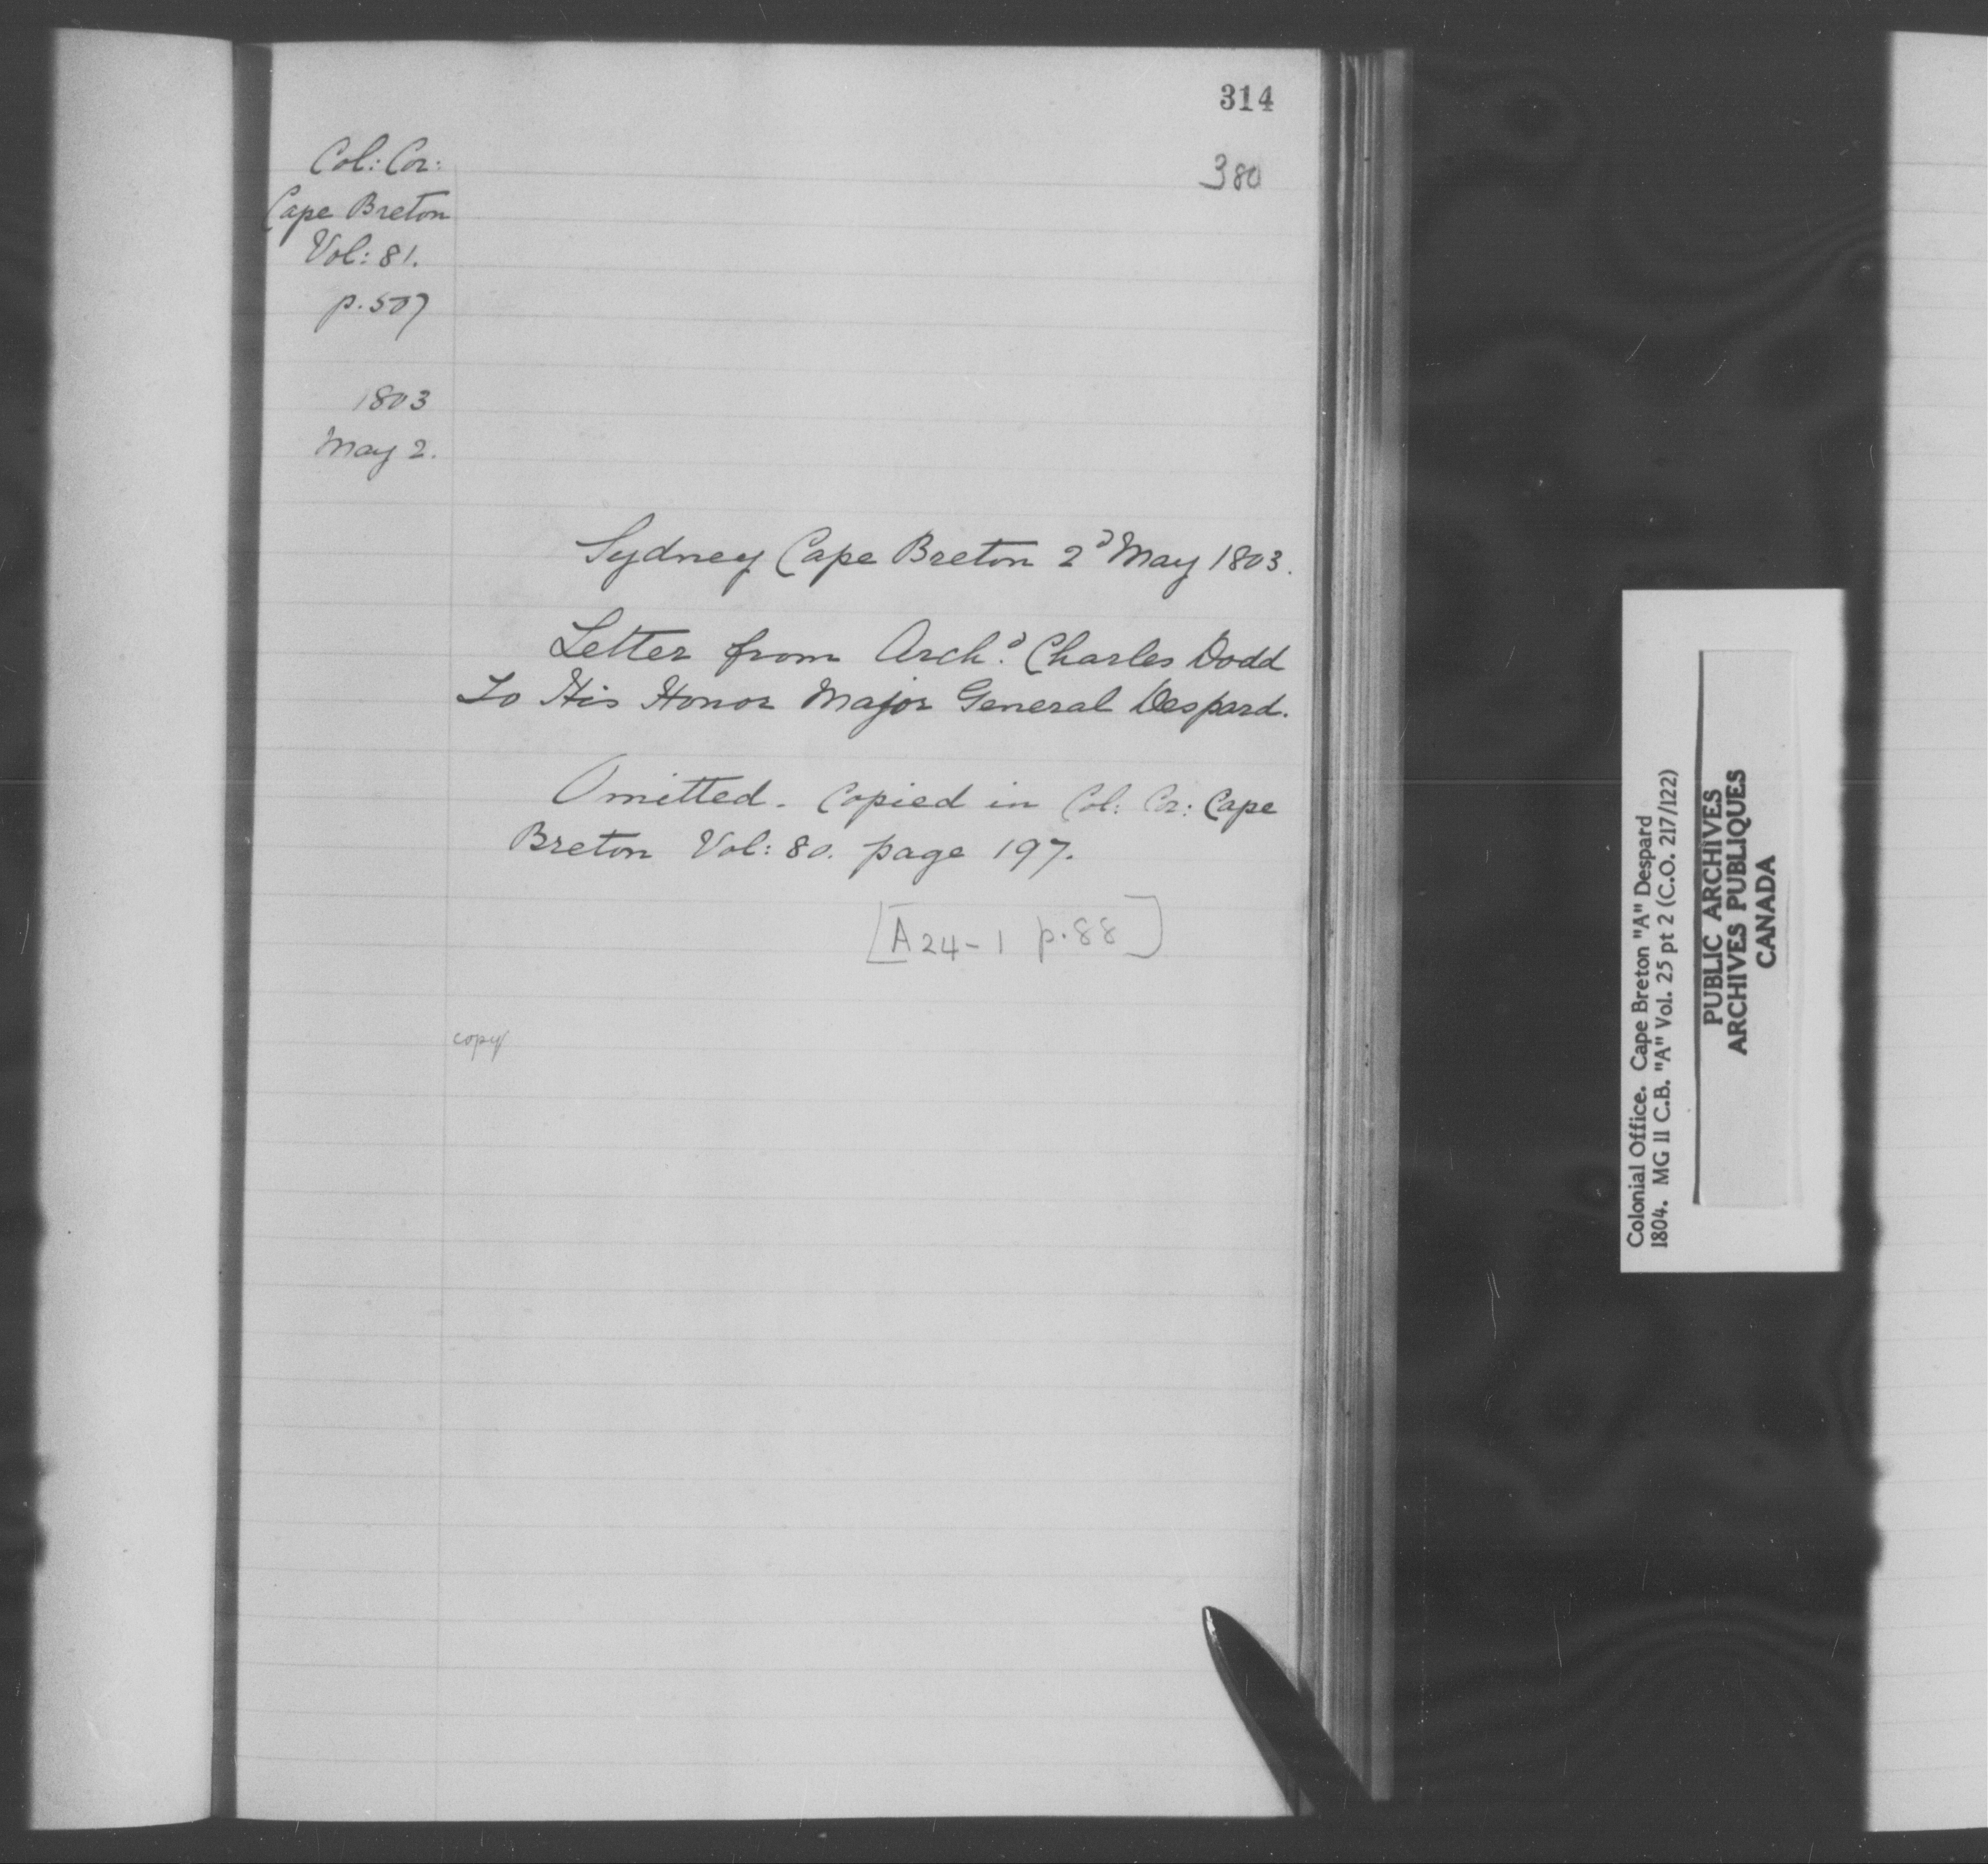 314
380
Col: Cor:
Cape Breton
Vol: 81.
p. 507
1803
May 2.
Sydney Cape Breton 2d May 1803.
Letter from Archd. Charles Dodd
to His Honor Major General Despard.
Omitted. Copied in Col: Cor: Cape
Breton Vol: 80. page 197.
[A 24-1 p. 88]
copy
Colonial Office. Cape Breton "A" Despard
1804. MG 11 C.B. "A" Vol. 25 pt 2 (C.O. 217/122)
PUBLIC ARCHIVES
ARCHIVES PUBLIQUES
CANADA